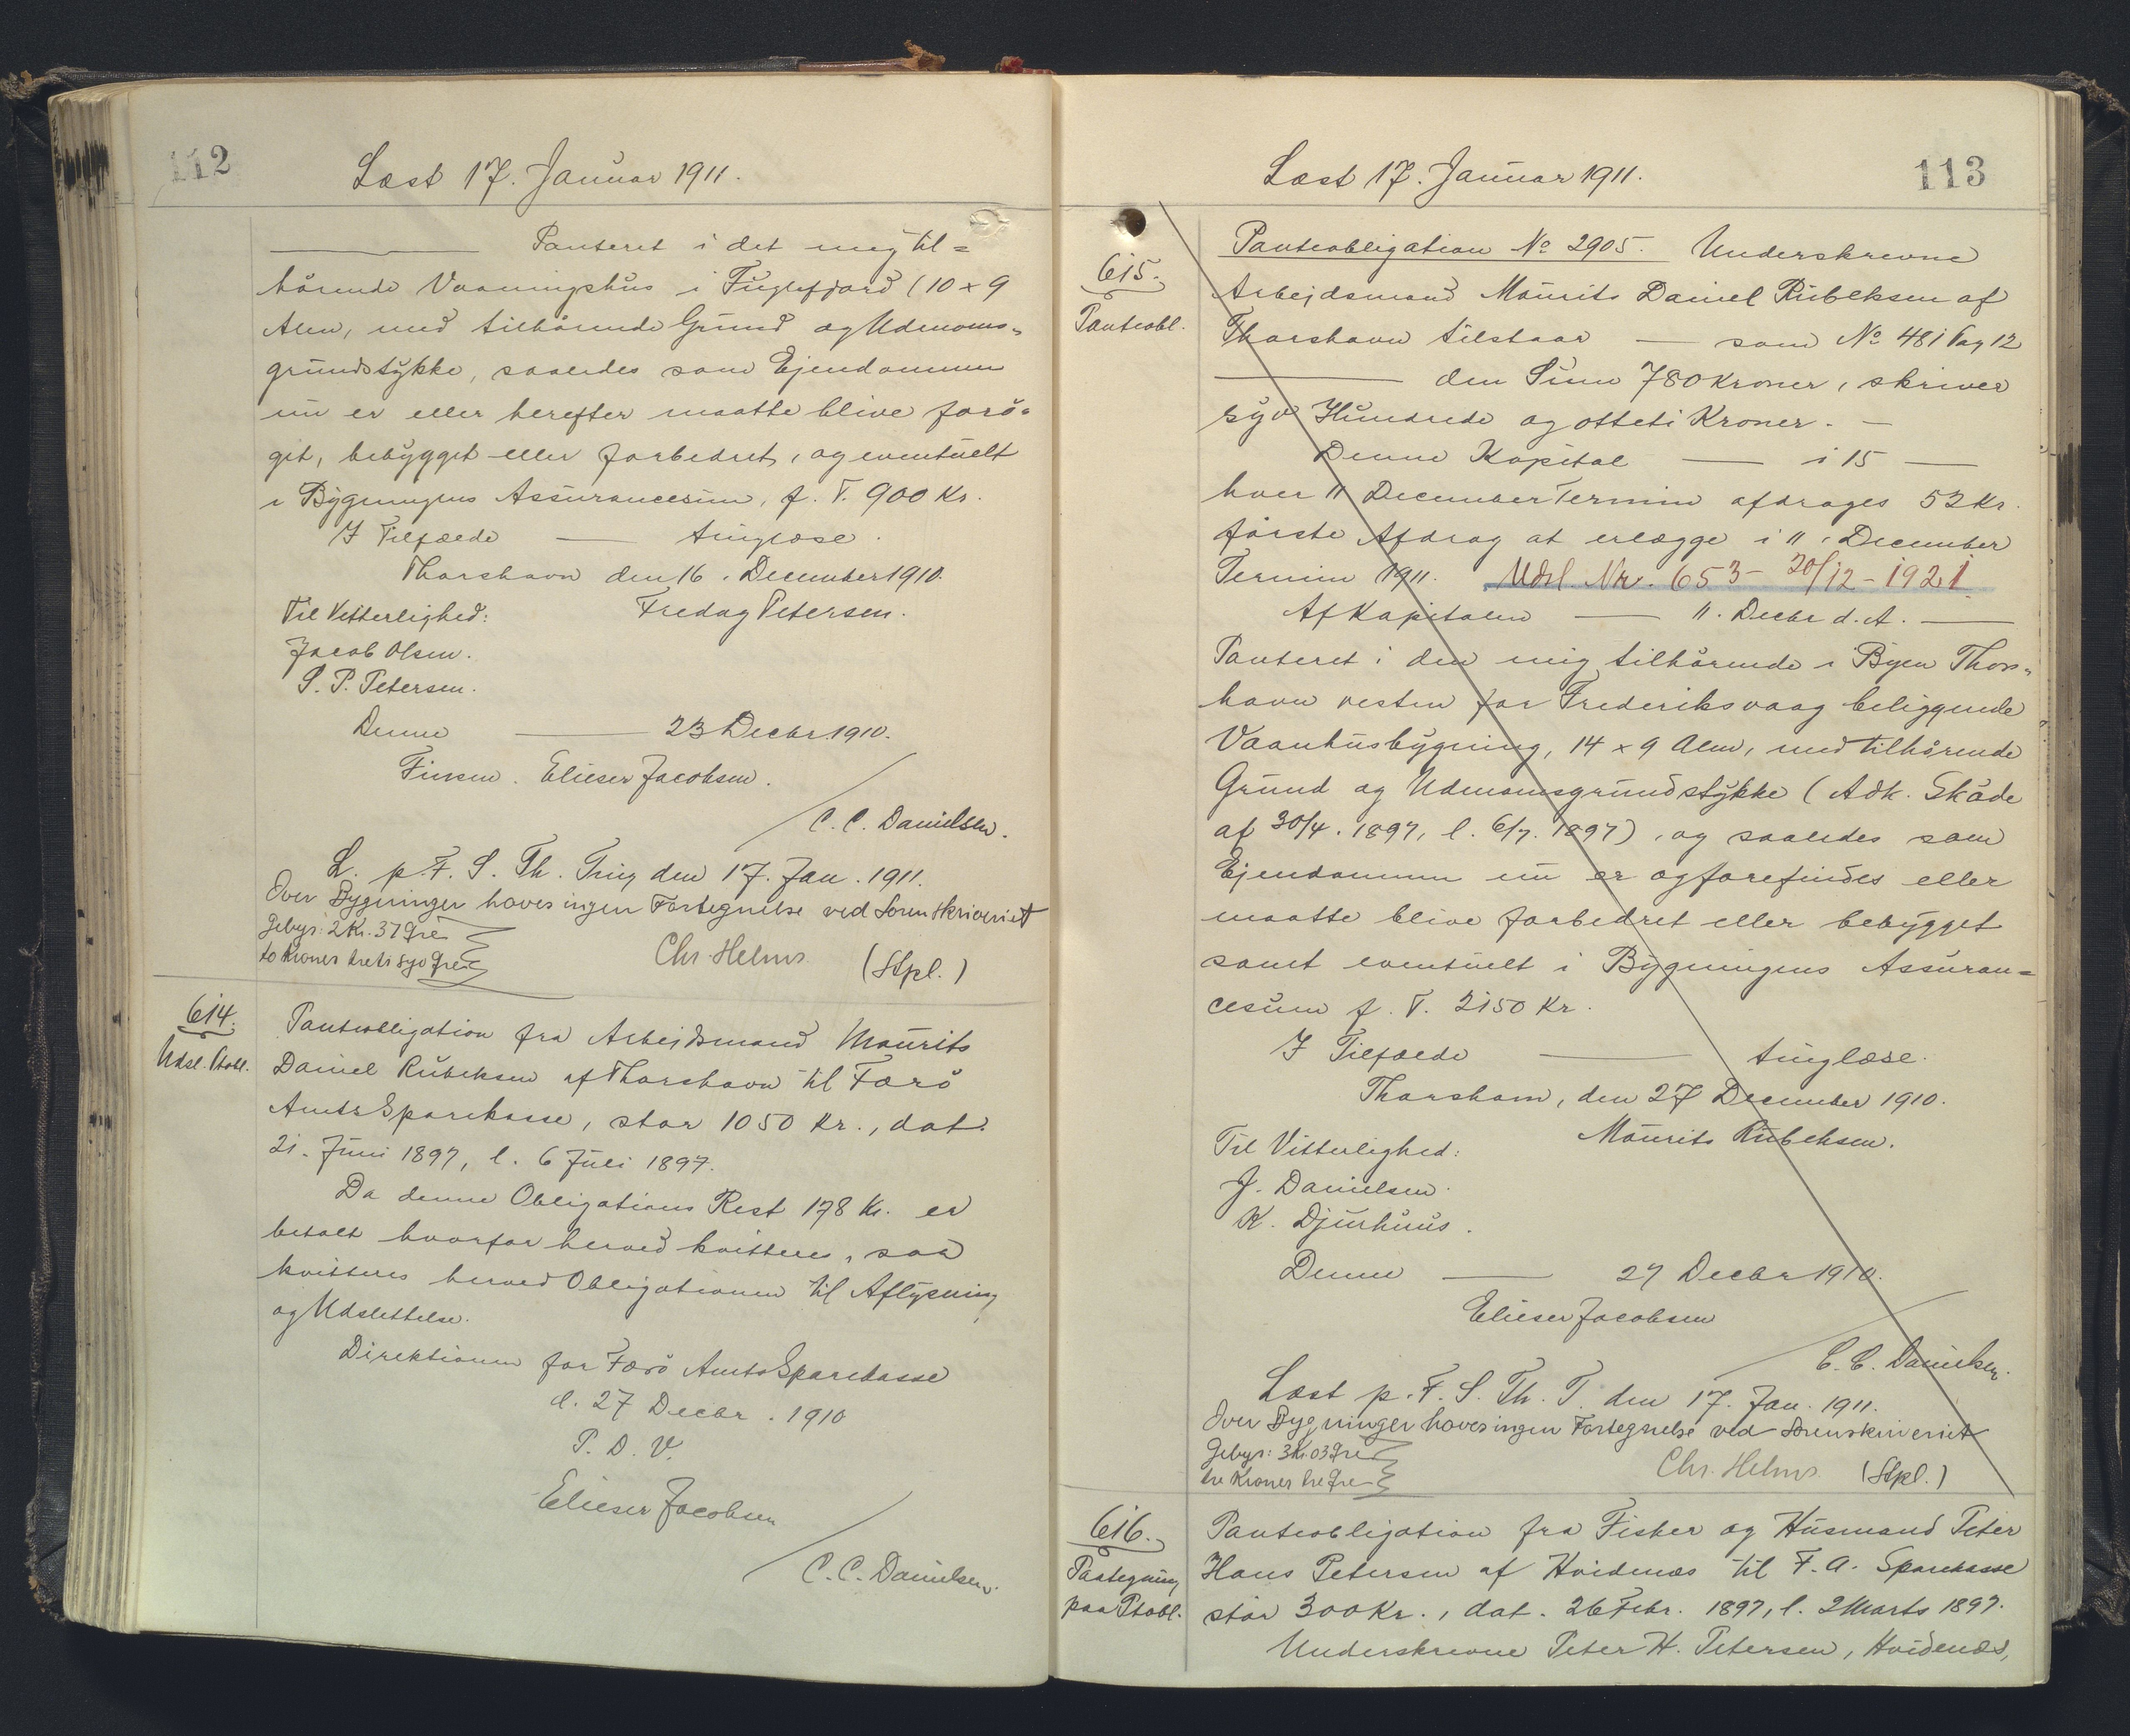 112
Læst 17. Januar 1911.
Panteret i det mig til=
hørende Vaaningshus i Fuglefjord (10 x 9
Alen, med tilhørende Grund og Udmarks-
grundstykke, saaledes som Ejendommen
nu er eller herefter maatte blive forø-
get, bebygget eller forbedret, og eventuelt
i Bygningens Assurancesum, f. T. 900 Kr.
I Tilfælde — tinglæse.
Thorshavn den 16. December 1910.
Til Vitterlighed: Fredag Petersen.
Jacob Olsen.
S. P. Petersen.
Denne — 23 Decbr. 1910.
Finsen. Elieser Jacobsen.
/ C. C. Danielsen.
L. p. F. S. Th. Ting den 17. Jan. 1911.
Over Bygninger haves ingen Fortegnelse ved Sorenskriveriet
Gebyr: 2 Kr. 37 Øre
to Kroner treti syv Øre Chr. Helms. (Stpl.)
614.
Udsl. Ptobl.
Panteobligation fra Arbejdsmand Maurits
Daniel Rubeksen af Thorshavn til Færø
Amts Sparekasse, stor 1050 Kr., dat.
21. Juni 1897, l. 6 Juli 1897.
Da denne Obligations Rest 178 Kr. er
betalt hvorfor herved kvitteres, saa
kvitteres herved Obligationen til Aflysning
og Udslettelse.
Direktionen for Færø Amts Sparekasse
d. 27 Decbr. 1910
P. D. V.
Elieser Jacobsen
/ C. C. Danielsen.
Læst 17. Januar 1911.
113
615.
Panteobl.
Panteobligation № 2905. Underskrevne
Arbejdsmand Maurits Daniel Rubeksen af
Thorshavn tilstaar — som № 481 Pag 12
— den Sum 780 Kroner, skriver
syv Hundrede og otteti Kroner. —
Denne Kapital — i 15 —
hver 11 December Termin afdrages 52 Kr.
første Afdrag at erlægge i 11. December
Termin 1911. Udsl. Nr. 653 - 20/12 - 1921
Af Kapitalen — 11. Decbr d. A. —
Panteret i den mig tilhørende i Byen Thors-
havn vesten for Frederiksvaag beliggende
Vaanhusbygning, 14 x 9 Alen, med tilhørende
Grund og Udmarksgrundstykke (Adk. Skøde
af 30/4. 1897, l. 6/7. 1897), og saaledes som
Ejendommen nu er og forefindes eller
maatte blive forbedret eller bebygget
samt eventuelt i Bygningens Assuran=
cesum f. T. 2150 Kr.
I Tilfælde — tinglæse.
Thorshavn, den 27 December 1910.
Til Vitterlighed: Maurits Rubeksen.
J. Danielsen.
K. Djurhuus.
Denne — 27 Decbr 1910.
Elieser Jacobsen
/ C. C. Danielsen.
Læst p. F. S. Th. T. den 17. Jan. 1911.
Over Bygninger haves ingen Fortegnelse ved Sorenskriveriet
Gebyr: 3 Kr. 03 Øre
tre Kroner tre Øre Chr. Helms. (Stpl.)
616.
Paategning
paa Ptobl.
Panteobligation fra Fisker og Husmand Peter
Hans Petersen af Hvidenæs til F. A. Sparekasse
stor 300 Kr., dat. 26 Febr. 1897, l. 2 Marts 1897.
Underskrevne Peter H. Petersen, Hvidenæs,